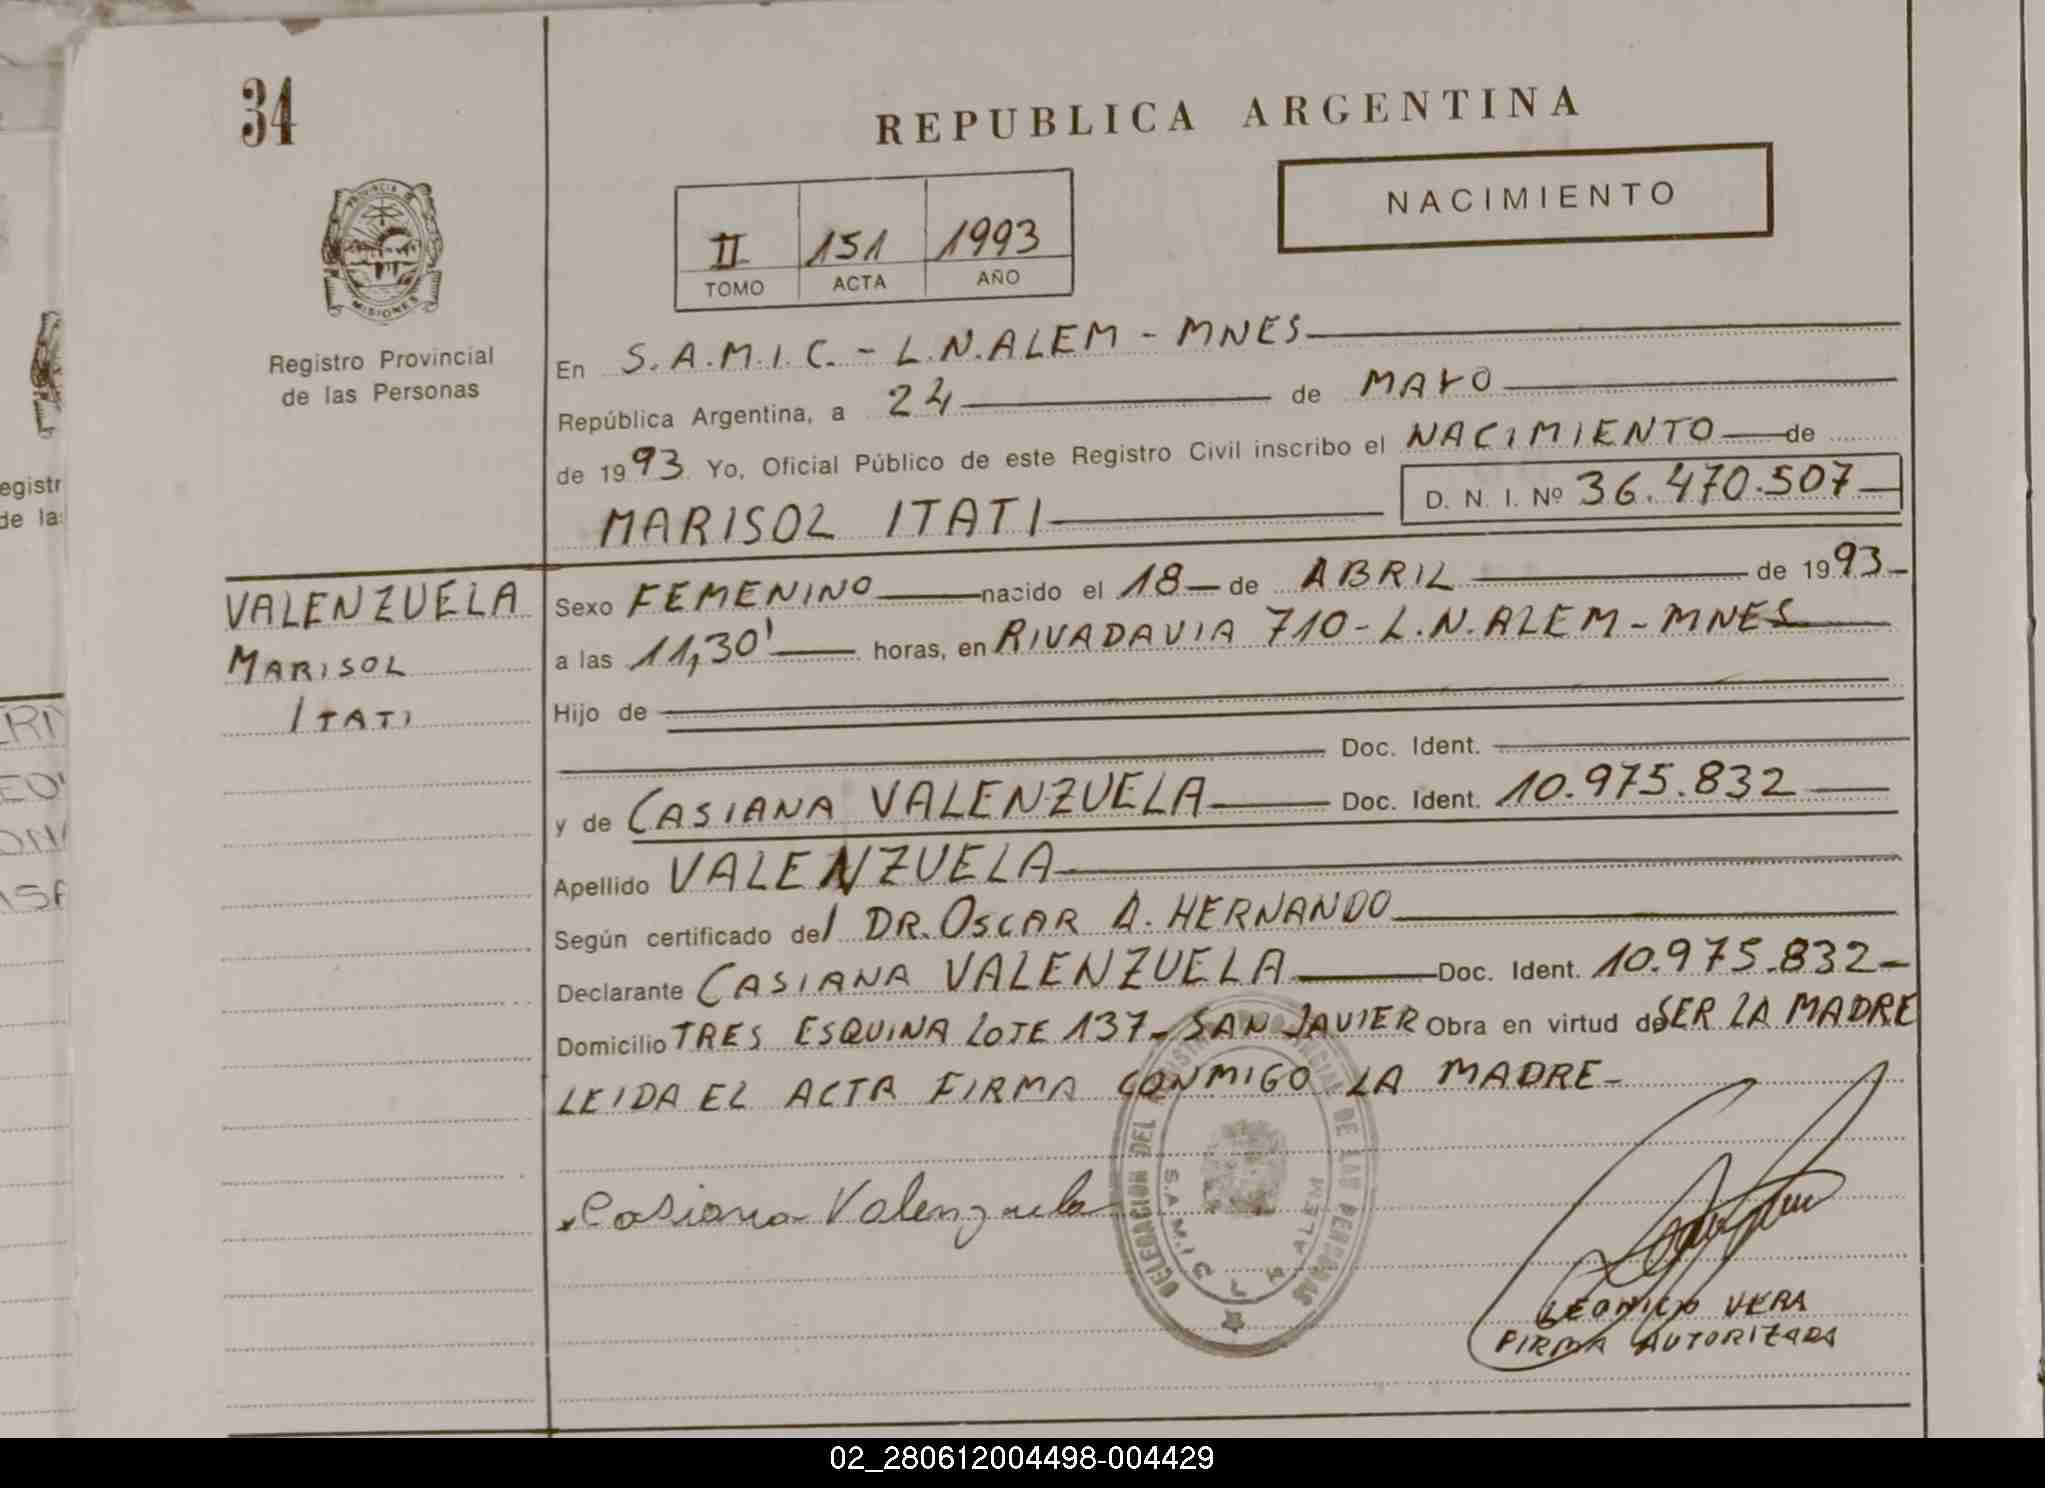 34
REPUBLICA ARGENTINA
NACIMIENTO
II 151 1993
TOMO ACTA AÑO
PROVINCIA DE
MISIONES
Registro Provincial
de las Personas
En S.A.M.I.C. - L.N.ALEM - MNES
República Argentina, a 24 de MAYO
de 1993 Yo, Oficial Público de este Registro Civil inscribo el NACIMIENTO de
MARISOL ITATI D. N. I. Nº 36.470.507
VALENZUELA
MARISOL
ITATI
Sexo FEMENINO nacido el 18 de ABRIL de 1993
a las 11,30' horas, en RIVADAVIA 710 - L.N.ALEM - MNES
Hijo de
Doc. Ident.
y de CASIANA VALENZUELA Doc. Ident. 10.975.832
Apellido VALENZUELA
Según certificado del DR. OSCAR A. HERNANDO
Declarante CASIANA VALENZUELA Doc. Ident. 10.975.832
Domicilio TRES ESQUINA LOTE 137 - SAN JAVIER Obra en virtud de SER LA MADRE
LEIDA EL ACTA FIRMA CONMIGO LA MADRE -
Casiana Valenzuela
DELEGACION DEL REGISTRO PROVINCIAL DE LAS PERSONAS
S.A.M.I.C. L.N. ALEM
LEONICIO VERA
FIRMA AUTORIZADA
egistr
de las
02_280612004498-004429